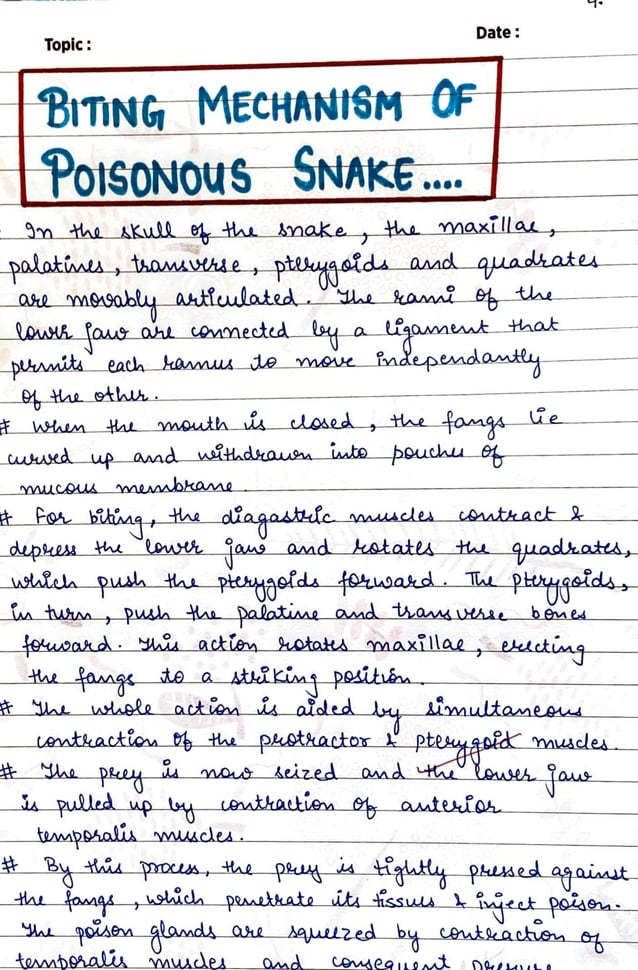 4.
Topic :
Date :
BITING MECHANISM OF
POISONOUS SNAKE....
In the skull of the snake, the maxillae,
palatines, transverse, pterygoids and quadrates
are movably articulated. The rami of the
lower jaw are connected by a ligament that
permits each ramus to move independantly
of the other.
# When the mouth is closed, the fangs lie
curved up and withdrawn into pouches of
mucous membrane.
# For biting, the diagastric muscles contract &
depress the lower jaw and rotates the quadrates,
which push the pterygoids forward. The pterygoids,
in turn, push the palatine and transverse bones
forward. This action rotates maxillae, erecting
the fangs to a striking position.
# The whole action is aided by simultaneous
contraction of the protractor & pterygoid muscles.
# The prey is now seized and the lower jaw
is pulled up by contraction of anterior
temporalis muscles.
# By this process, the prey is tightly pressed against
the fangs, which penetrate its tissues & inject poison.
The poison glands are squeezed by contraction of
temporalis muscles and consequent pressure